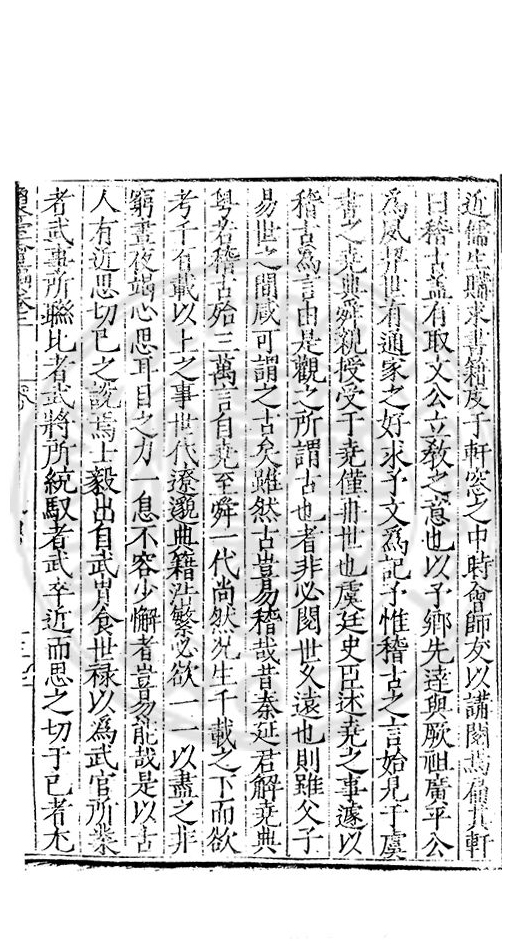 近儒生購求書籍度于軒窓之中時會師友以講閱焉顏其軒
曰稽古盖有取文公立敎之意也以予鄉先達與厥祖廣平公
為夙昔世有通家之好求予文為記予惟稽古之言始見于虞
書之堯典舜親授受于堯僅卅世也虞廷史臣述堯之事遽以
稽古為言由是觀之所謂古也者非必閱世久遠也則雖父子
易世之間咸可謂之古矣雖然古豈易稽哉昔秦延君解堯典
粤若稽古殆三萬言自堯至舜一代尚然况生千載之下而欲
考千百載以上之事世代遼邈典籍浩繁必欲一一以盡之非
窮晝夜竭心思耳目之力一息不容少懈者豈易能哉是以古
人有近思切己之說焉士毅出自武胄食世禄以為武官所業
者武事所聮比者武將所統馭者武卒近而思之切于己者尤